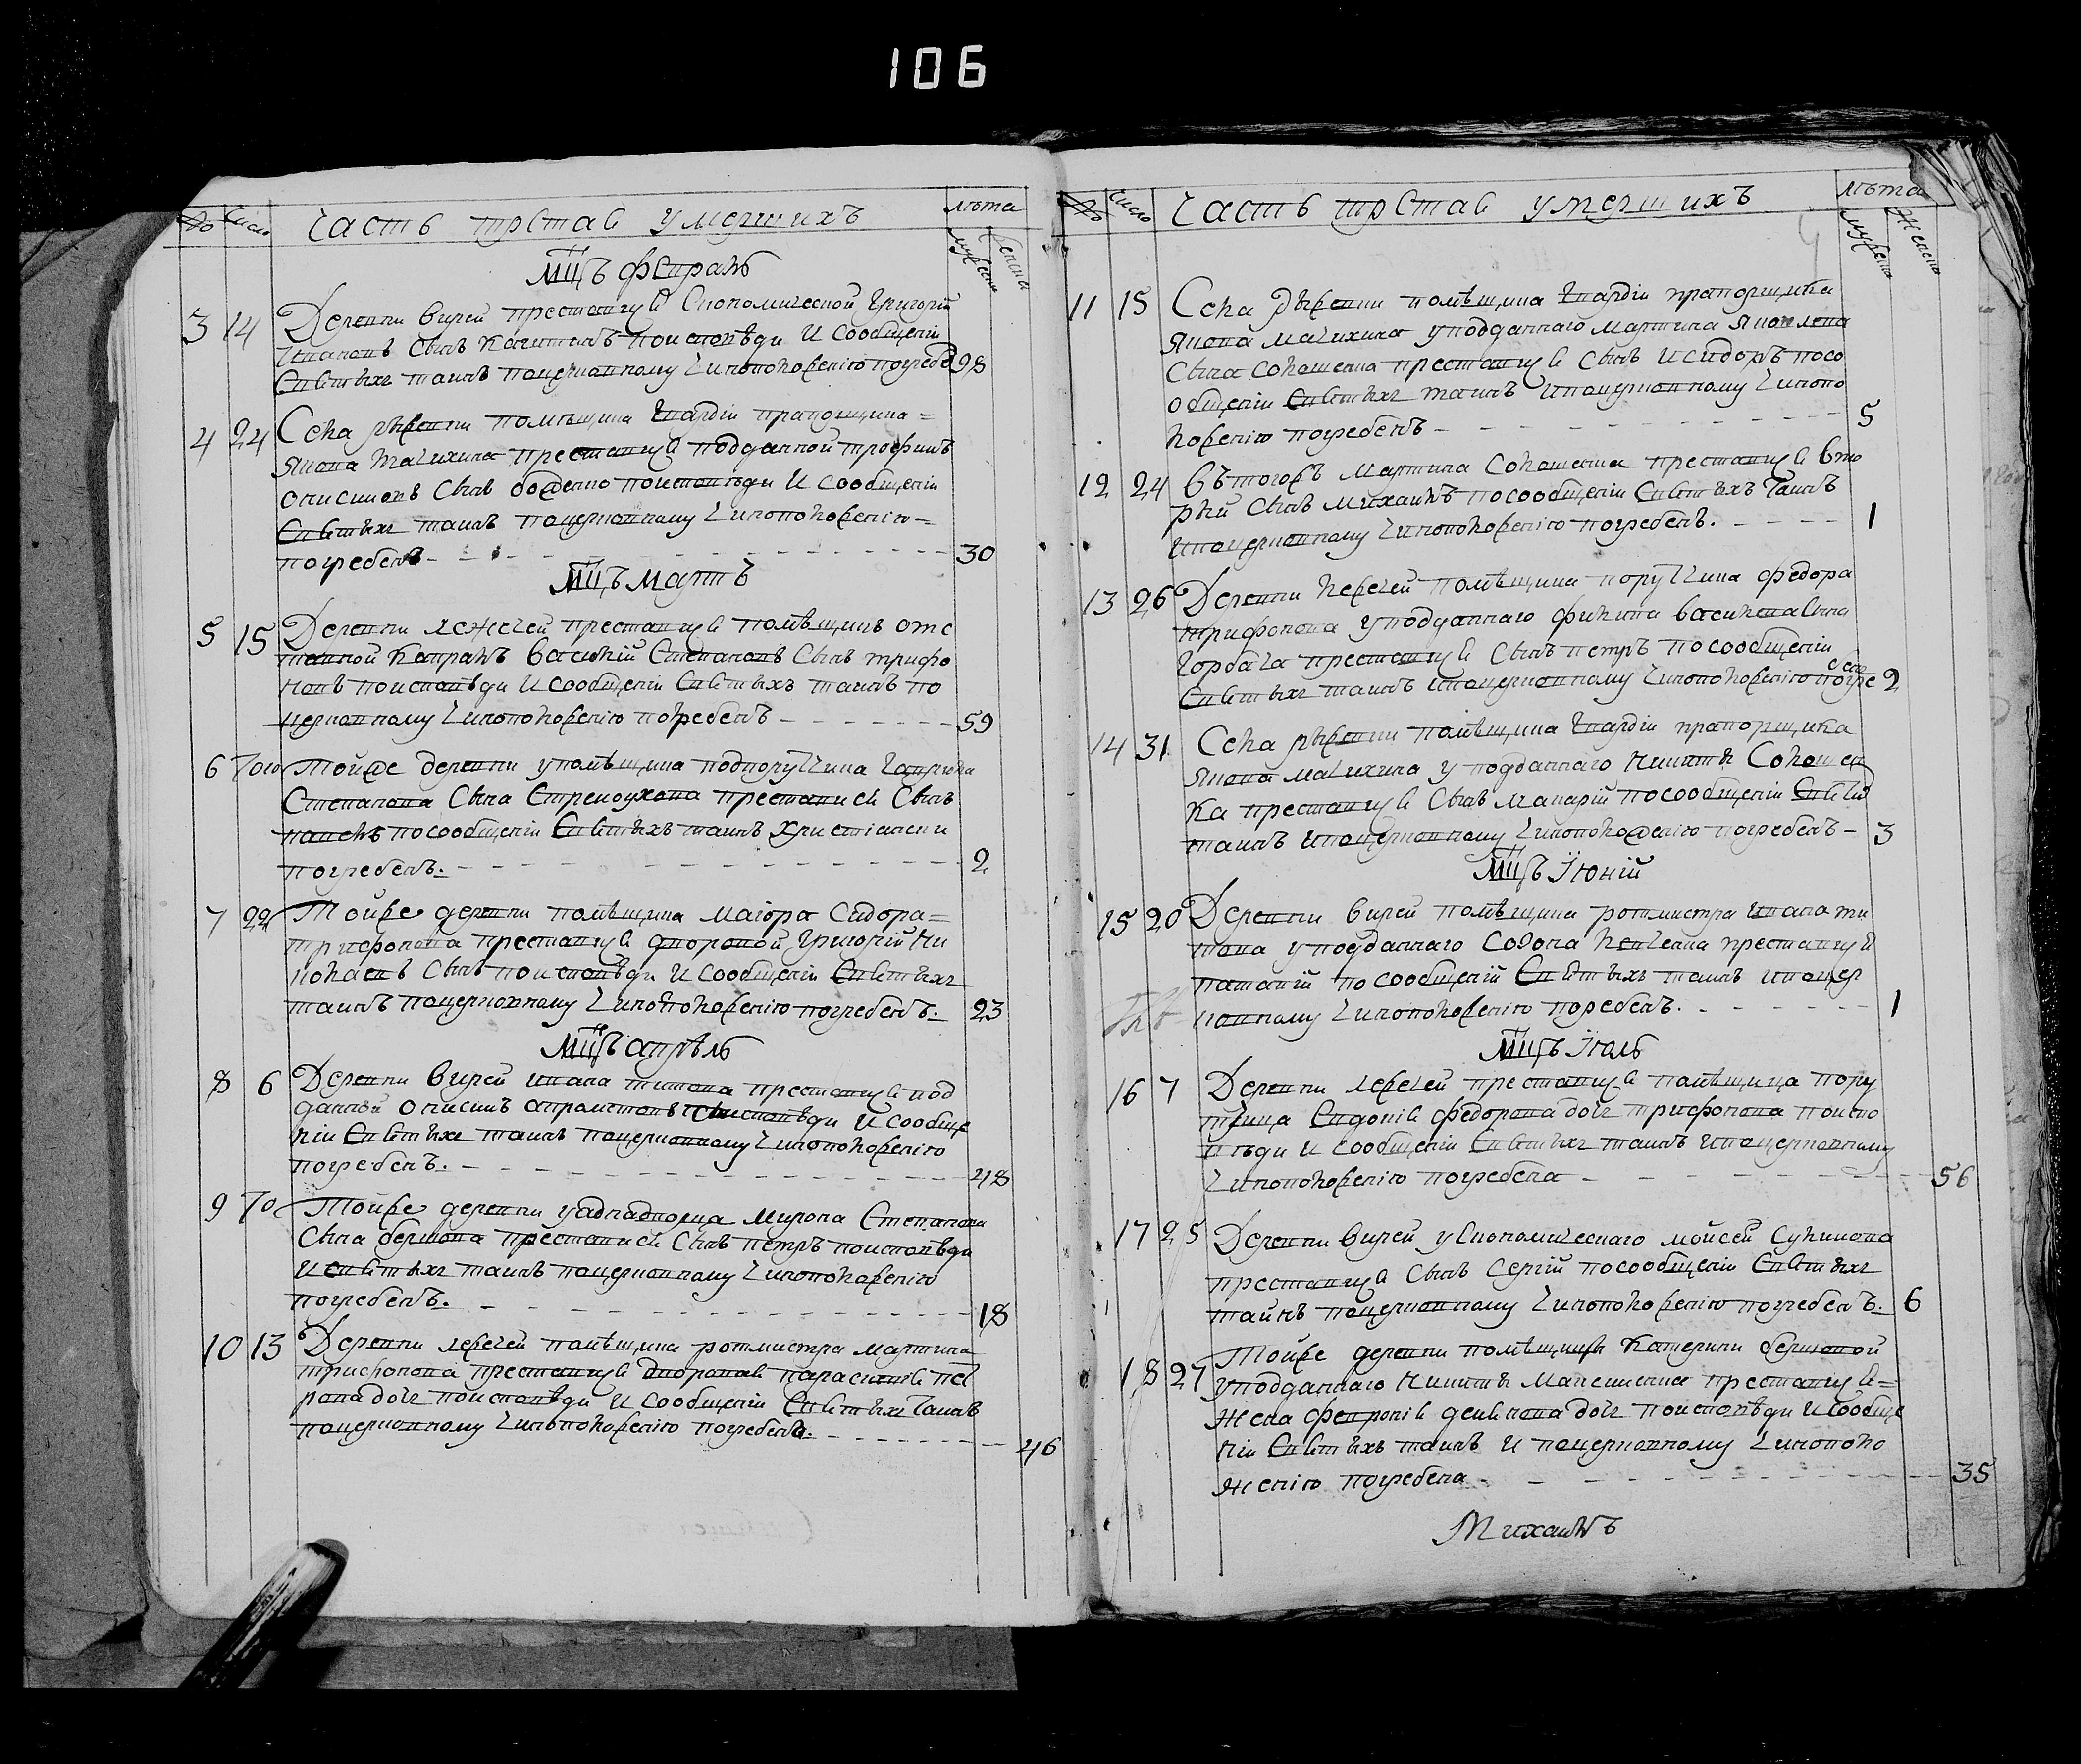 106
№ Число Часть третья умершихъ лѣта
мужеска женска
Мцъ февраль
3 14 Деревни Вирей преставися Економической Григорїй
Ивановъ сынъ поисповѣди и сообщенїи
Святыхъ таинъ поцерковному чиноположенїю погребе 98
4 24 Села помѣщика Гвардїи прапорщика =
Якова преставися подданной трофимъ
Онисимовъ сынъ поисповѣди и сообщенїи
Святыхъ таинъ поцерковному чиноположенїю =
погребенъ - - - 30
Мцъ Мартъ
5 15 Деревни лежечей преставися помѣщикъ отс
тавной Капралъ Василїй Степановъ сынъ трифо
новъ поисповѣди и сообщенїи Святыхъ таинъ по
церковному чиноположенїю погребенъ - - - 59
6 Того Тойже деревни упомѣщика подпорутчика Гаврїила
Степанова сына преставися сынъ
павелъ посообщенїи Святыхъ таинъ христїански
погребенъ. - - - 2
7 22 Тойже деревни помѣщика Маїора Сидора =
трифонова преставися дворовой Григорїй Ни
колаевъ сынъ поисповѣди и сообщенїи Святыхъ
таинъ поцерковному чиноположенїю погребенъ. 23
Мцъ апрѣль
8 6 Деревни Вирей ивана титова преставися под
данной Онисимъ поисповѣди и сообще
нїи Святыхъ таинъ поцерковному чиноположенїю
погребенъ. - - - 48
9 То Тойже деревни Мирона Степанова
сына преставися сынъ петръ поисповѣди
и святыхъ таинъ поцерковному чиноположенїю
погребенъ. - - - 18
10 13 Деревни лежечей помѣщика ротмистра Мартина
трифонова преставися дворовая парасковїя пет
рова дочь поисповѣди и сообщенїи Святыхъ Таинъ
поцерковному чиноположенїю погребена. - - - 46
№ Число Часть третья умершихъ лѣта
мужеска Женска
11 15 Села помѣщика Гвардїи прапорщика
Якова уподданнаго Мартина Яковлева
сына преставися сынъ Исидоръ посо
общенїи Святыхъ таинъ ипоцерковному чинопо
ложенїю погребенъ - - - 5
12 24 Мартина преставися вто
рый сынъ Михаилъ посообщенїи Святыхъ Таинъ
ипоцерковному чиноположенїю погребенъ. - - - 1
13 26 Деревни лежечей помѣщика порутчика федора
трифонова уподданнаго сына
Горбача преставися сынъ петръ посообщенїи
Святыхъ таинъ ипоцерковному чиноположенїю погре 2
бенъ
14 31 Села помѣщика Гвардїи прапорщика
Якова у подданнаго Никиты
ка преставися сынъ Макарїй посообщенїи
таинъ ипоцерковному чиноположенїю погребенъ - 3
Мцъ Їюнїй
15 20 Деревни Вирей помѣщика ротмистра ивана ти
това уподданнаго преставися
посообщенїи Святыхъ таинъ ипоцер
ковному чиноположенїю погребенъ. - - - 1
Мцъ Їюль
16 7 Деревни лежечей преставися помѣщица пору
тчица Евдокїя федорова дочь трифонова поиспо
вѣди и сообщенїи Святыхъ таинъ ипоцерковному
чиноположенїю погребена - - - 56
17 25 Деревни Вирей уЕкономическаго Мойсея
преставися сынъ Сергїй посообщенїи Святыхъ
тайнъ поцерковному чиноположенїю погребенъ. 6
18 27 Тойже деревни помѣщицы Катерины
уподданнаго Никиты преставися =
жена февронїя дочь поисповѣди и сообще
нїи Святыхъ таинъ и поцерковному чинополо
женїю погребена - - - 35
Михаилъ